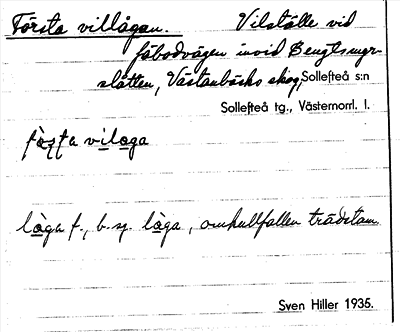 Första villågan. Vilställe vid
fäbodvägen invid Bengtsmyr-
slåtten, Västanbäcks skog, Sollefteå s:n
Sollefteå tg., Västernorrl. l.
vilåga
låga f., b. sg. låga, omkullfallen trädstam
Sven Hiller 1935.